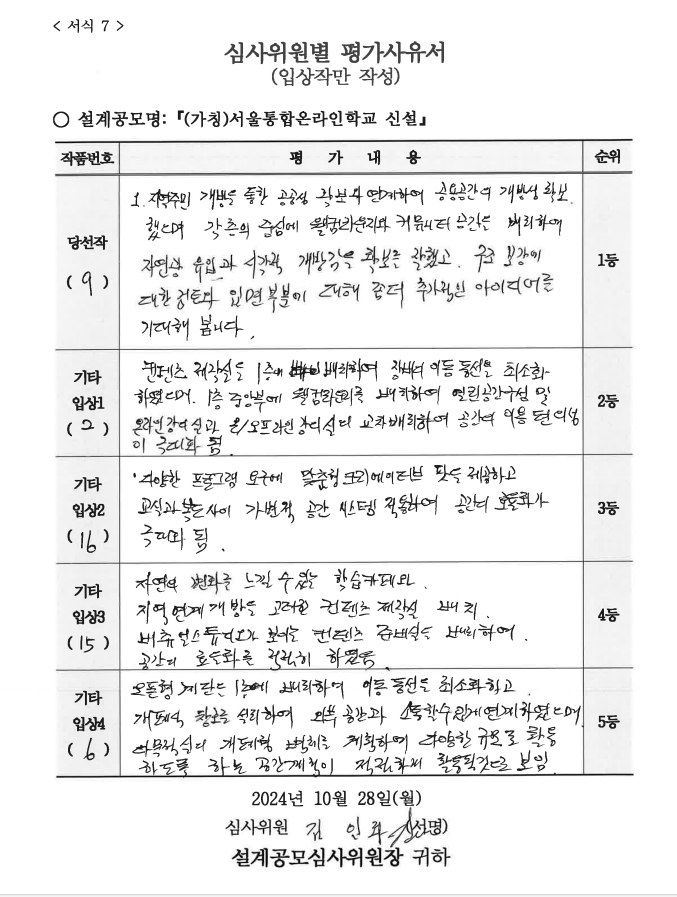 < 서식 7 >
심사위원별 평가사유서
(입상작만 작성)
○ 설계공모명: 『(가칭)서울통합온라인학교 신설』
작품번호 평 가 내 용 순위
당선작
( 9 )
1. 지역주민 개방을 통한 공공성 확보와 연계하여 공용공간의 개방성 확보
했으며 각층의 중심에 웰컴라운지와 커뮤니티 공간을 배치하여
자연광 유입과 시각적 개방감을 확보를 잘했고. 구조 보강에
대한 검토와 입면부분에 대해 좀더 추가적인 아이디어를
기대해 봅니다.
1등
기타
입상1
( 2 )
컨텐츠 제작실을 1층에 배치하여 장비의 이동 동선을 최소화
하였으며. 1층 중앙부에 웰컴라운지를 배치하여 열린공간구성 및
온라인강의실과 온/오프라인강의실의 교차배치하여 공간의 이용 편의성
이 극대화 됨
2등
기타
입상2
( 16 )
다양한 프로그램 요구에 맞춤형 크리에이티브 팟을 제공하고
교실과 복도사이 가변적 공간 시스템 적용하여 공간의 효율화가
극대화 됨.
3등
기타
입상3
( 15 )
자연의 변화를 느낄 수 있는 학습카페와.
지역연계개방을 고려한 컨텐츠 제작실 배치.
버츄얼스튜디오가 보이는 컨텐츠 준비실을 배치하여.
공간의 효율화를 적절히 하였음
4등
기타
입상4
( 6 )
오픈형 계단을 1층에 배치하여 이동 동선을 최소화하고
개폐식 창호를 설치하여 외부 공간과 소통할수있게 연계하였으며
다목적실의 개폐형 벽체를 계획하여 다양한 규모로 활동
하도록 하는 공간계획이 적절하게 활용될것으로 보임.
5등
2024년 10월 28일(월)
심사위원 김 인 (서명)
설계공모심사위원장 귀하